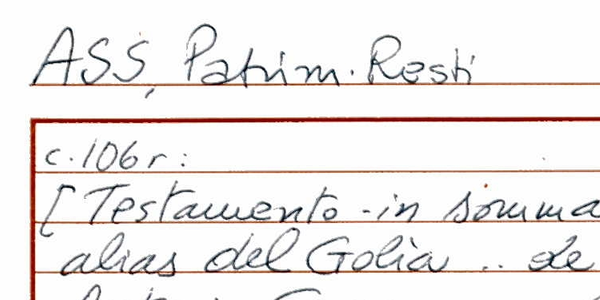 ASS, Patrim. Resti
c. 106 r:
[Testamento - in somma
alias del Golia .. de